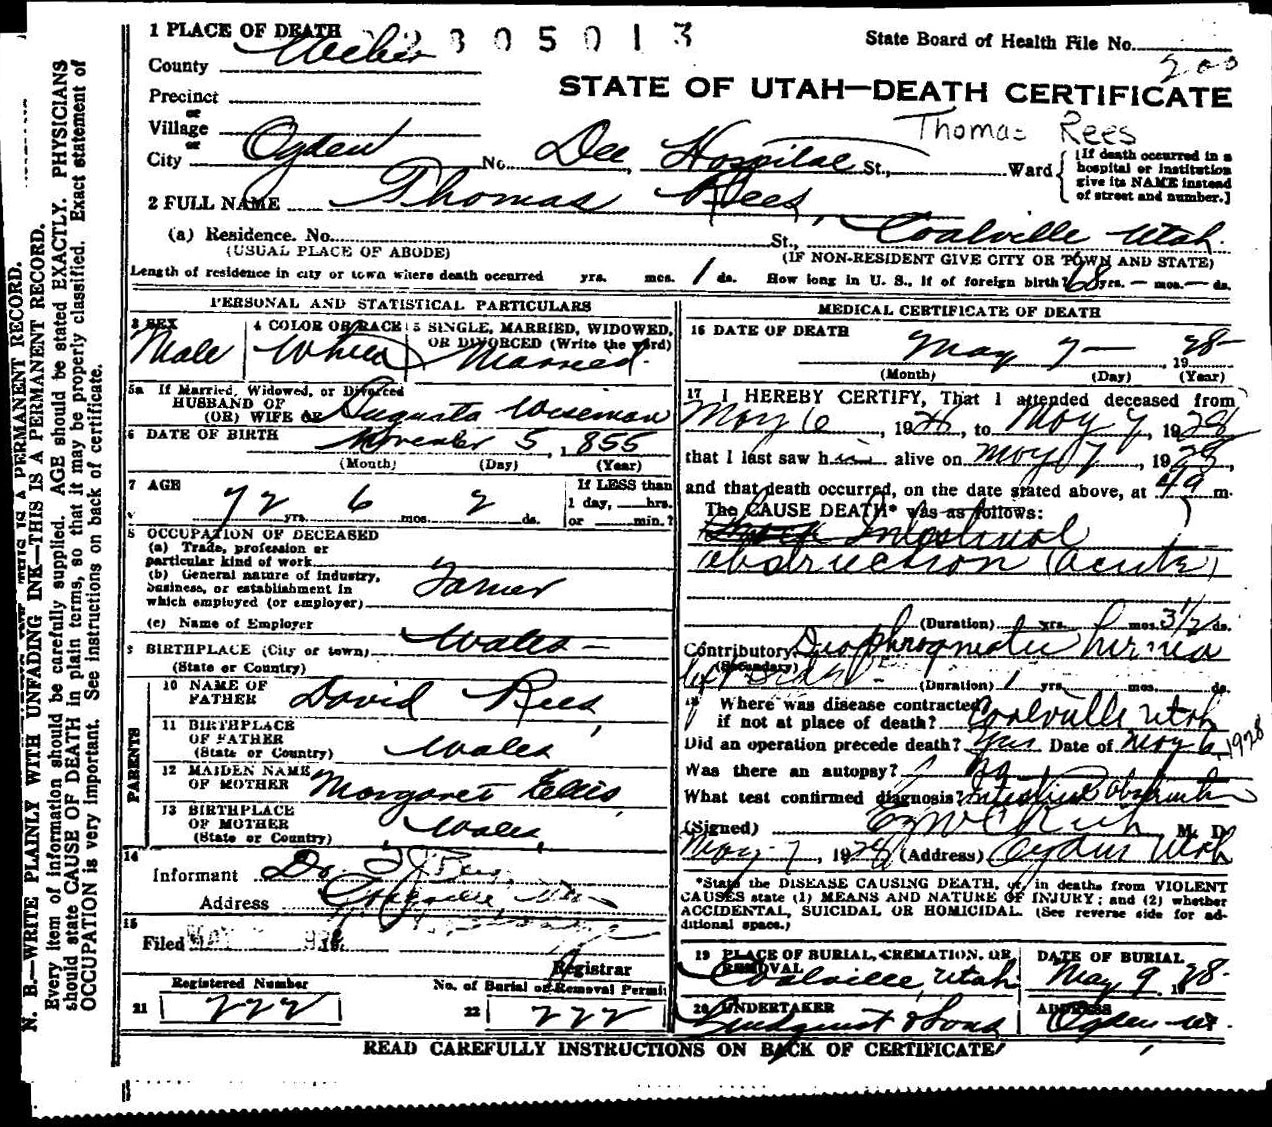 1 PLACE OF DEATH 2805013
State Board of Health File No. 200
County Weber
STATE OF UTAH—DEATH CERTIFICATE
Precinct
or
Village
Thomas Rees
or
City Ogden No. Dee Hospital St., Ward
[If death occurred in a hospital or institution give its NAME instead of street and number.]
2 FULL NAME Thomas Rees,
(a) Residence. No. St., Coalville Utah.
(USUAL PLACE OF ABODE) (IF NON-RESIDENT GIVE CITY OR TOWN AND STATE)
Length of residence in city or town where death occurred yrs. mos. 1 ds. How long in U. S., if of foreign birth? 68 yrs. — mos. — ds.
PERSONAL AND STATISTICAL PARTICULARS
3 SEX Male
4 COLOR OR RACE White
5 SINGLE, MARRIED, WIDOWED, OR DIVORCED (Write the word) Married.
5a If Married, Widowed, or Divorced
HUSBAND OF
(OR) WIFE OF Augusta Wiseman
6 DATE OF BIRTH November 5, 1855
(Month) (Day) (Year)
7 AGE 72 yrs. 6 mos. 2 ds.
If LESS than
1 day, hrs.
or min.?
8 OCCUPATION OF DECEASED
(a) Trade, profession or
particular kind of work
(b) General nature of industry,
business, or establishment in
which employed (or employer) Farmer
(c) Name of Employer
9 BIRTHPLACE (City or town) Wales —
(State or Country)
PARENTS
10 NAME OF
FATHER David Rees,
11 BIRTHPLACE
OF FATHER
(State or Country) Wales
12 MAIDEN NAME
OF MOTHER Margaret Ellis,
13 BIRTHPLACE
OF MOTHER
(State or Country) Wales,
14
Informant Dr
Address Coalville
15
Filed MAY
Registrar
Registered Number
21 222
No. of Burial or Removal Permit
22 222
MEDICAL CERTIFICATE OF DEATH
16 DATE OF DEATH
May 7— , 1928—
(Month) (Day) (Year)
17 I HEREBY CERTIFY, That I attended deceased from
May 6, 1928, to May 7, 1928
that I last saw him alive on May 7, 1928,
and that death occurred, on the date stated above, at m.
The CAUSE DEATH* was as follows:
Intestinal
obstruction (acute)
(Duration) yrs. mos. 3 1/2 ds.
Contributory Diaphragmatic hernia
(Secondary)
left side (Duration) 1 yrs. mos. ds.
18 Where was disease contracted
if not at place of death? Coalville Utah
Did an operation precede death? Yes Date of May 6, 1928
Was there an autopsy? No
What test confirmed diagnosis? Intestinal obstruction
(Signed) Rich M. D.
May 7, 1928 (Address) Ogden Utah
*State the DISEASE CAUSING DEATH, or, in deaths from VIOLENT
CAUSES state (1) MEANS AND NATURE OF INJURY; and (2) whether
ACCIDENTAL, SUICIDAL OR HOMICIDAL. (See reverse side for ad-
ditional space.)
19 PLACE OF BURIAL, CREMATION, OR
REMOVAL
Coalville, Utah
DATE OF BURIAL
May 9. 1928.
20 UNDERTAKER
Lindquist & Sons
ADDRESS
Ogden Ut.
READ CAREFULLY INSTRUCTIONS ON BACK OF CERTIFICATE
N. B.—WRITE PLAINLY WITH UNFADING INK—THIS IS A PERMANENT RECORD.
Every item of information should be carefully supplied. AGE should be stated EXACTLY. PHYSICIANS
should state CAUSE OF DEATH in plain terms, so that it may be properly classified. Exact statement of
OCCUPATION is very important. See instructions on back of certificate.